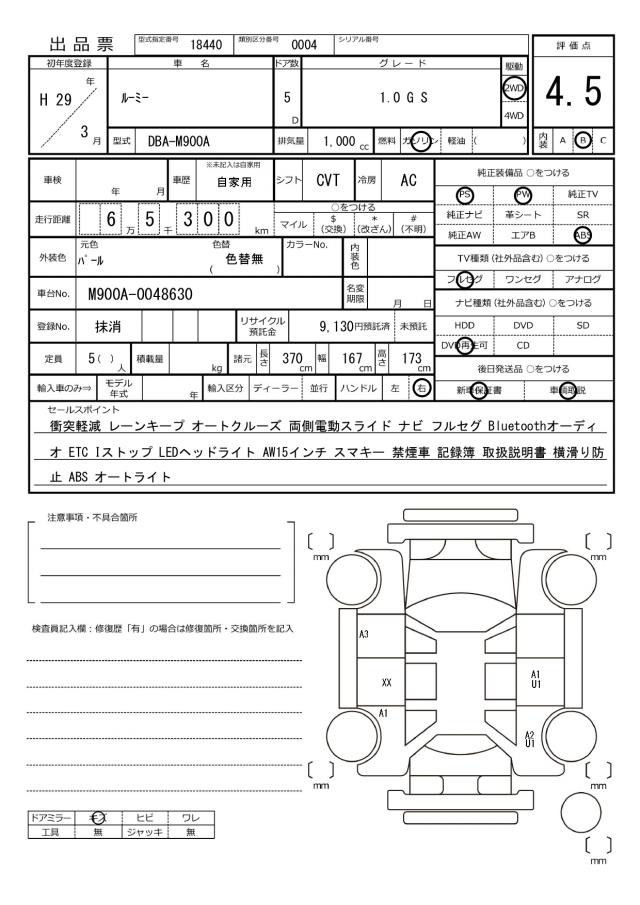 出品票 型式指定番号 18440 類別区分番号 0004 シリアル番号
評価点
4.5
内装 A B C
初年度登録 車名 ドア数 グレード 駆動
H 29 年 3 月 ルーミー 5 D 1.0 G S 2WD 4WD
型式 DBA-M900A 排気量 1,000 cc 燃料 ガソリン 軽油 ( )
車検 年 月 車歴 ※未記入は自家用 自家用 シフト CVT 冷房 AC
走行距離 6 万 5 千 3 0 0 km
○をつける
マイル $ (交換) * (改ざん) # (不明)
外装色 元色 パール 色替 ( 色替無 ) カラーNo. 内装色
車台No. M900A-0048630 名変期限 月 日
登録No. 抹消 リサイクル預託金 9,130円預託済 未預託
定員 5 ( ) 人 積載量 kg 諸元 長さ 370 cm 幅 167 cm 高さ 173 cm
輸入車のみ⇒ モデル年式 年 輸入区分 ディーラー 並行 ハンドル 左 右
純正装備品 ○をつける
PS PW 純正TV
純正ナビ 革シート SR
純正AW エアB ABS
TV種類 (社外品含む) ○をつける
フルセグ ワンセグ アナログ
ナビ種類 (社外品含む) ○をつける
HDD DVD SD
DVD再生可 CD
後日発送品 ○をつける
新車保証書 車輌取説
セールスポイント
衝突軽減 レーンキープ オートクルーズ 両側電動スライド ナビ フルセグ Bluetoothオーディ
オ ETC Iストップ LEDヘッドライト AW15インチ スマキー 禁煙車 記録簿 取扱説明書 横滑り防
止 ABS オートライト
注意事項・不具合箇所
検査員記入欄：修復歴「有」の場合は修復箇所・交換箇所を記入
〔 〕 mm
〔 〕 mm
A3
XX
A1
A1
U1
A2
U1
〔 〕 mm
〔 〕 mm
〔 〕 mm
ドアミラー キズ ヒビ ワレ
工具 無 ジャッキ 無